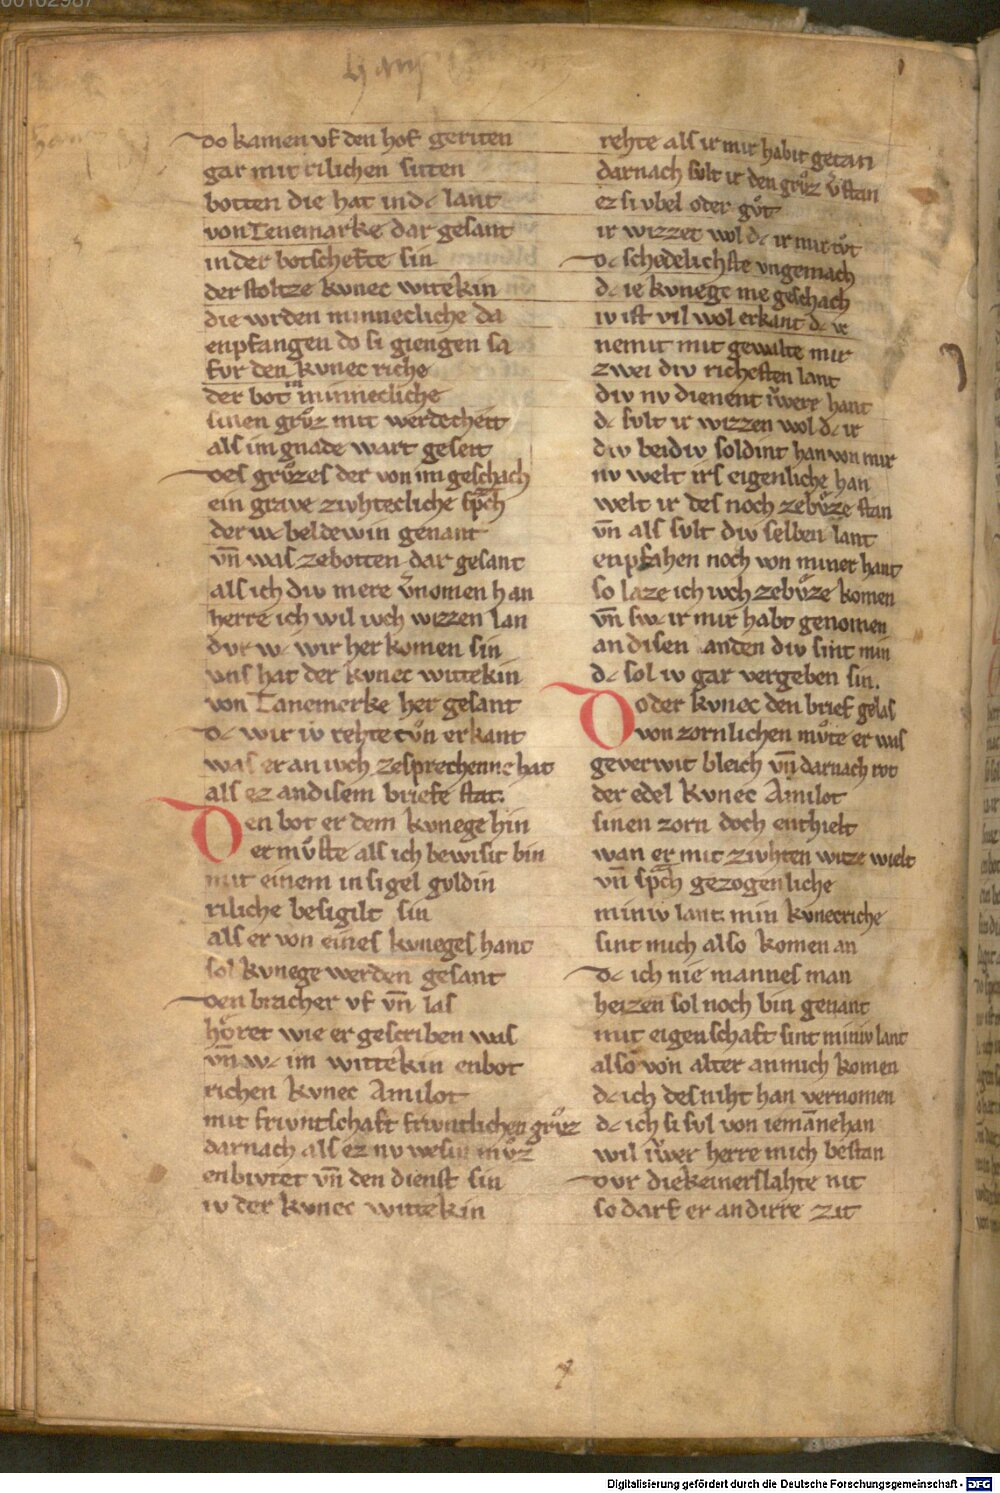 do kamen vf den hof geriten
gar mit rilichen siten
botten die hat in dc lant
von Tenemarke dar gesant
in der botschefte sin
der stoltze kvnec witekin
die wrden minnecliche da
enpfangen do si giengen sa
fvr den kvnec riche
der bot in minnecliche
sinen grůz mit werdecheit
als im gnade wart geseit
des grůzes der von im geschach
ein grave zivhtecliche sp̄ch
der wc beldewin genant
vn̄ was zebotten dar gesant
als ich div mere v̄nomen han
herre ich wil ivch wizzen lan
dvr wc wir her komen sin
vns hat der kvnec wittekin
von Tanemerke her gesant
dc wir iv rehte tv̊n erkant
was er an ivch zesprechenne hat
als ez an disem briefe stat.
Den bot er dem kvnege hin
er mv̊ste als ich bewisit bin
mit einem insigel gvldin
riliche besigilt sin
als er von eines kvneges hant
sol kvnege werden gesant
den bracher vf vn̄ las
hôret wie er gescriben was
vn̄ wc im wittekin enbot
richen kvnec Amilot
mit frivntschaft frivntlichen grv̊z
darnach als ez nv wesin mv̊z
enbivtet vn̄ den dienst sin
iv der kvnec wittekin
rehte als ir mir habit getan
darnach svlt ir den grv̊z v̄stan
ez si vbel oder gv̊t
ir wizzet wol dc ir mir tv̊t
dc schedelichste vngemach
dc ie kvnege me geschach
iv ist vil wol erkant dc ir
nemit mit gewalte mir
zwei div richesten lant
div nv dienent iv̄were hant
dc svlt ir wizzen wol dc ir
div beidiv soldint han von mir
nv welt irs eigenliche han
welt ir des noch zebv̊ze stan
vn̄ als svlt div selben lant
enpfahen noch von miner hant
so laze ich ivch zebv̊ze komen
vn̄ swc ir mir habt genomen
an disen landen div sint min
dc sol iv gar vergeben sin.
Do der kvnec den brief gelas
von zornlichen mv̊te er was
geverwit bleich vn̄ darnach rot
der edel kvnec Amilot
sinen zorn doch enthielt
wan er mit zivhten witze wielt
vn̄ sp̄ch gezogenliche
miniv lant min kvnecriche
sint mich also komen an
dc ich nie mannes man
heizen sol noch bin genant
mit eigenschaft sint miniv lant
also von alter an mich komen
dc ich des niht han vernomen
dc ich si svl von iemāne han
wil iv̄wer herre mich bestan
dvr diekeinerslahte nit
so darf er an dirre zit